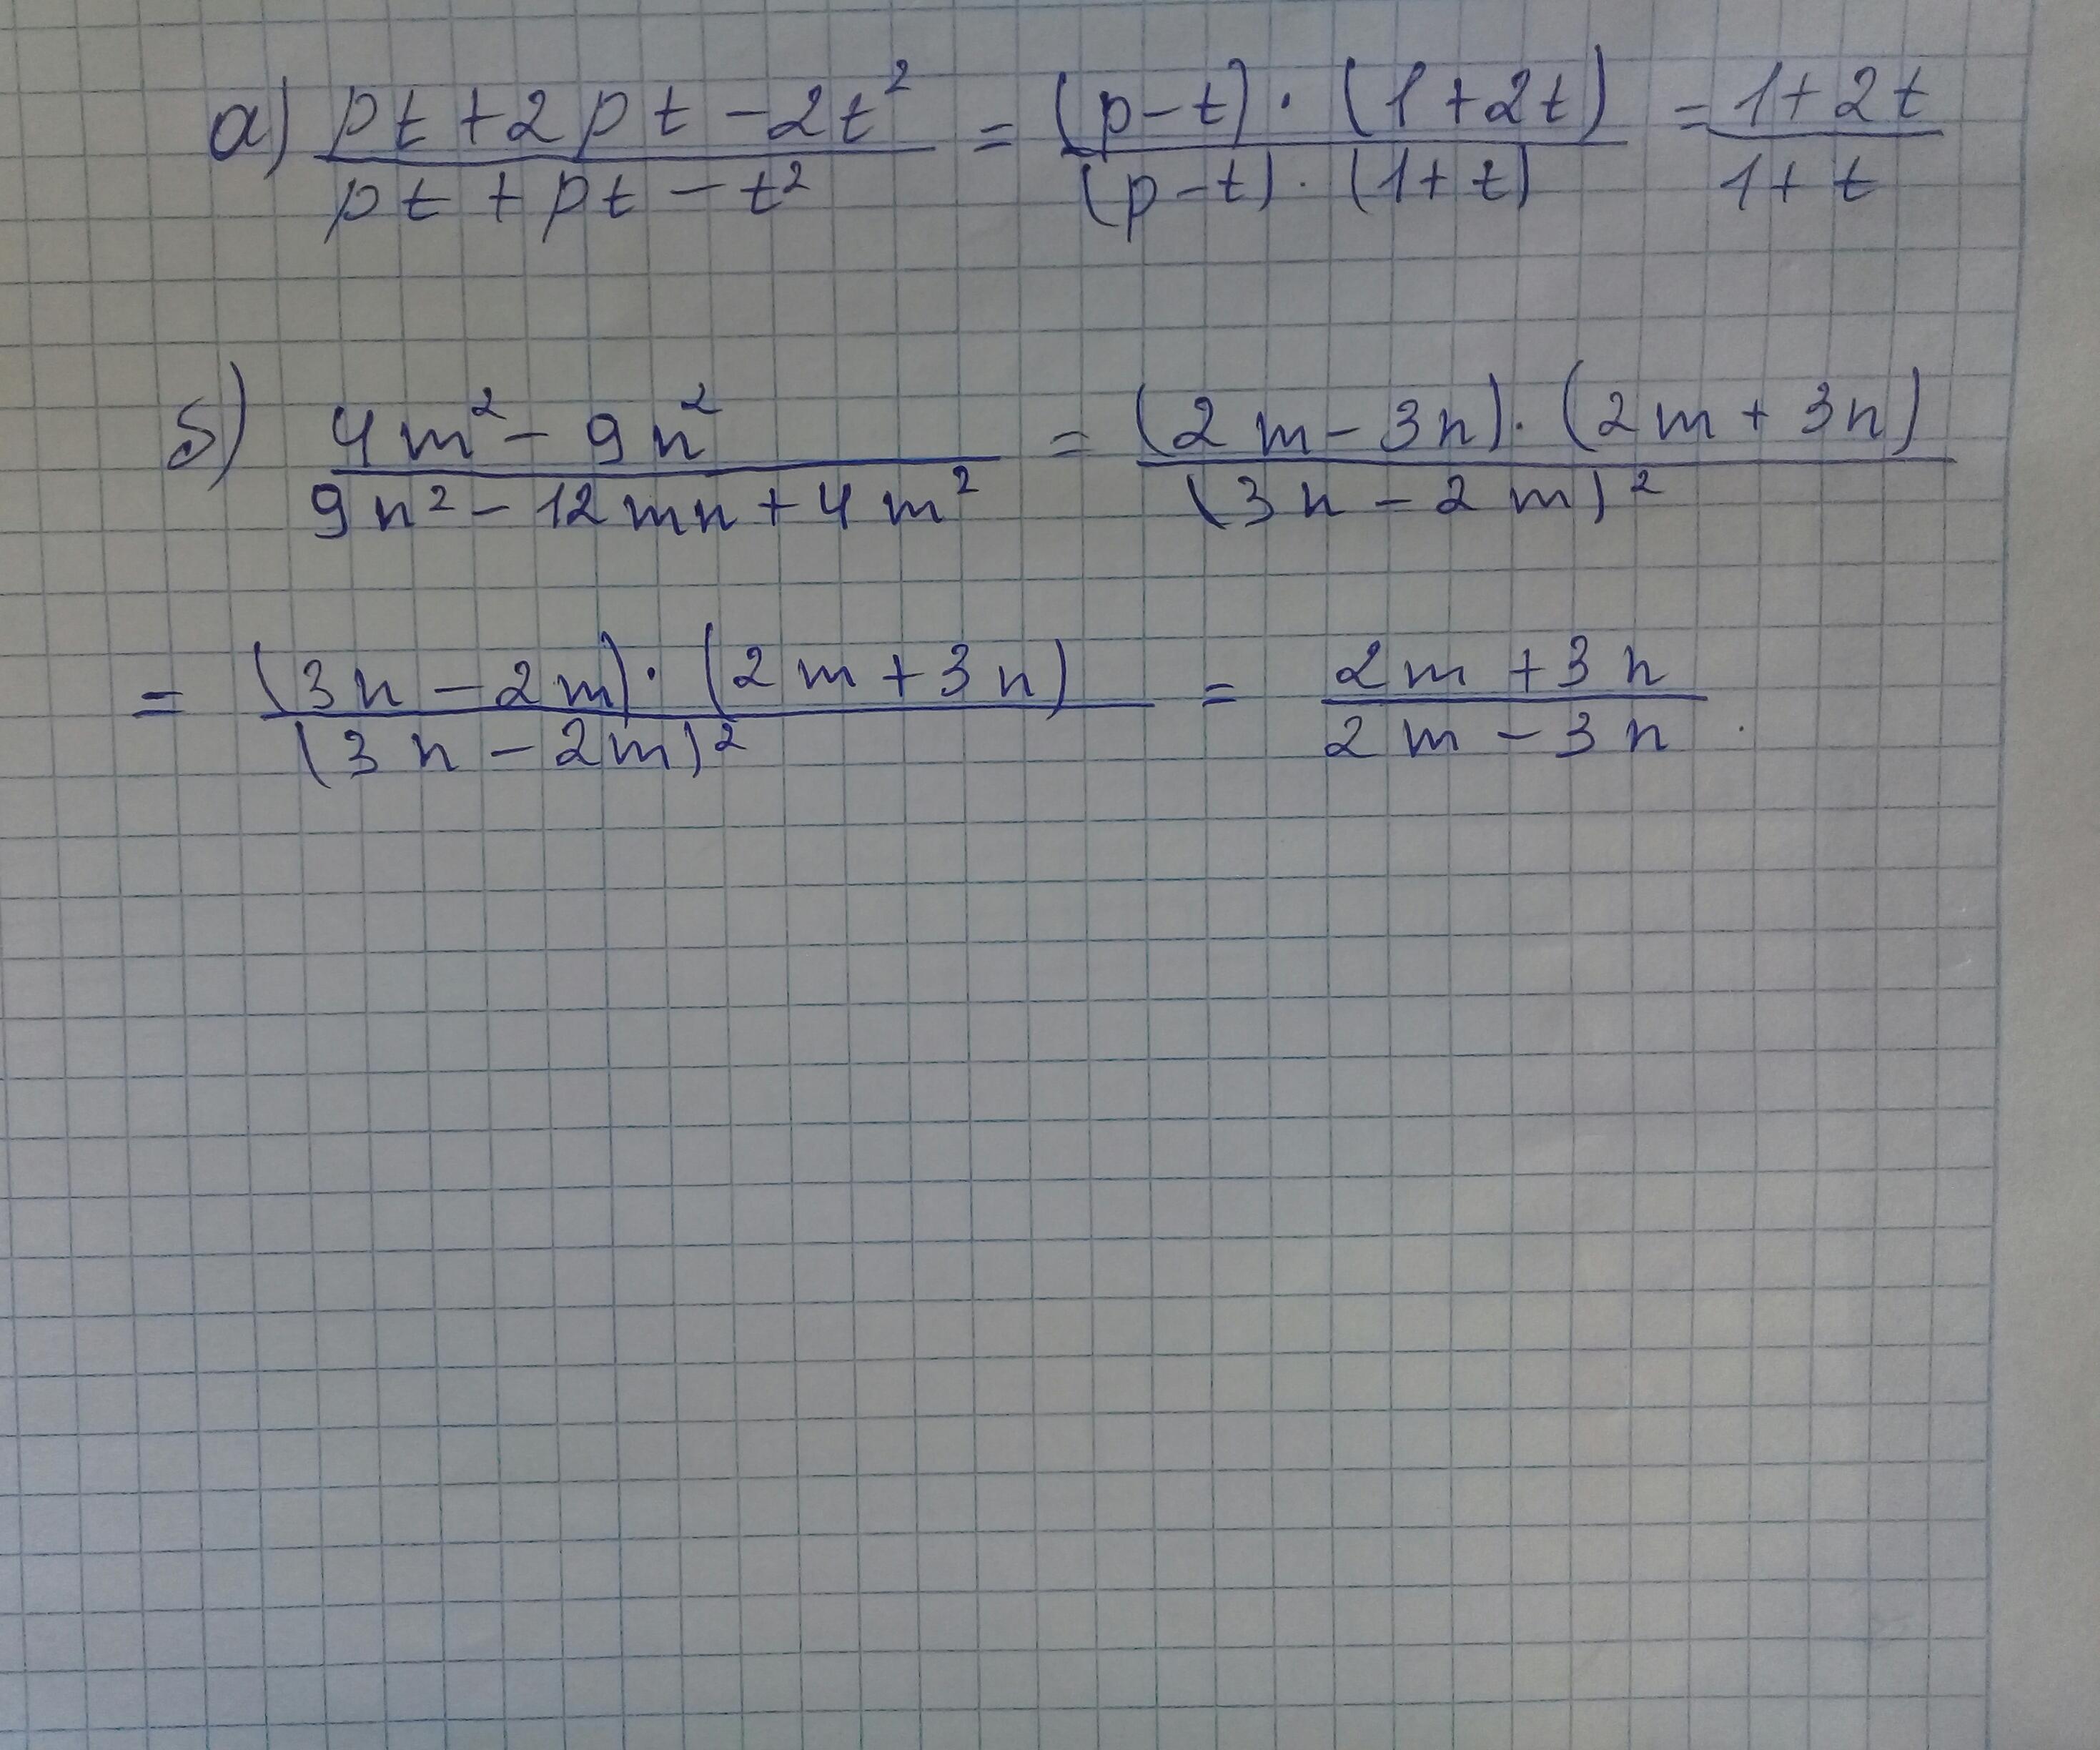 а) (pt + 2pt - 2t²)/(pt + pt - t²) = ((p-t)·(1+2t))/((p-t)·(1+t)) = (1+2t)/(1+t)
б) (4m² - 9n²)/(9n² - 12mn + 4m²) = ((2m-3n)·(2m+3n))/((3n-2m)²)
= ((3n-2m)·(2m+3n))/((3n-2m)²) = (2m+3n)/(2m-3n).